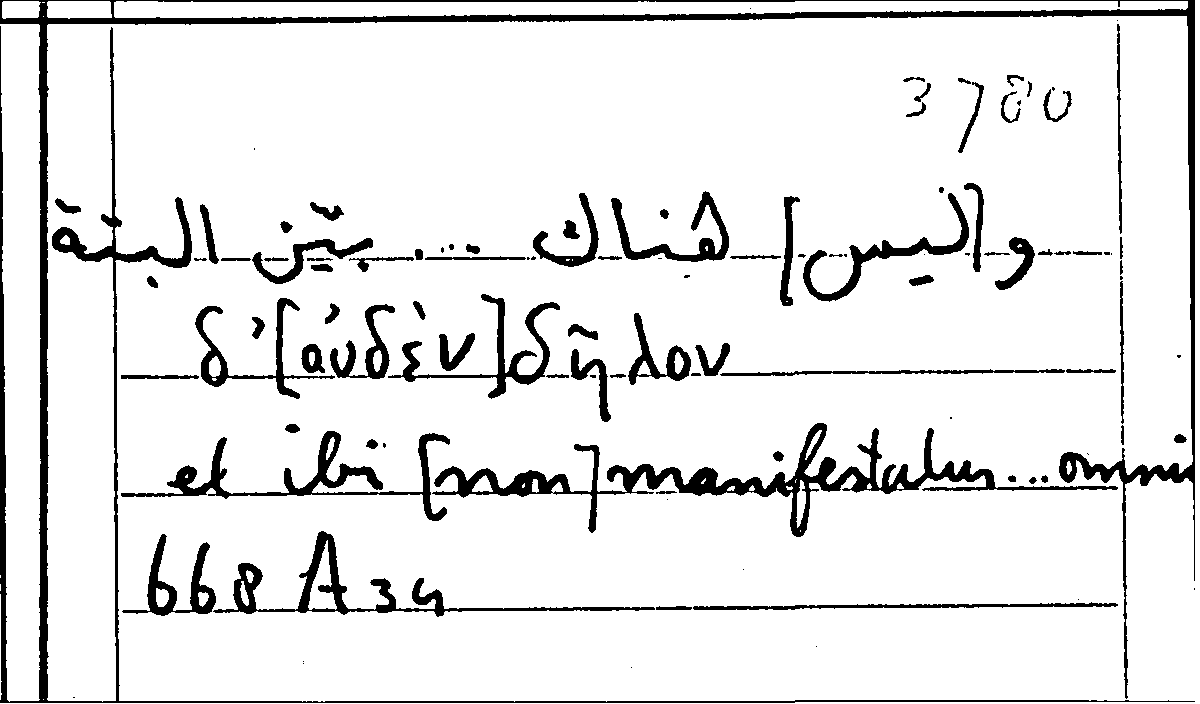 3780
و[ليس] هناك ... بيّن البتّة
δ'[ἀυδὲν]δῆλον
et ibi [non] manifestatur...omni
668 A 34